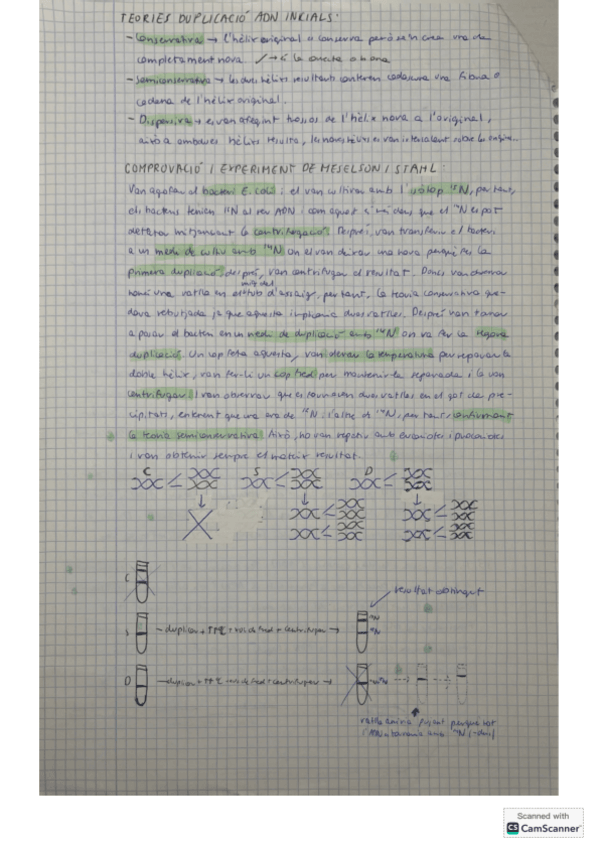 TEORIES DUPLICACIÓ ADN INICIALS:
- Conservativa → l'hèlix original es conserva però se'n crea una de
completament nova
- Semiconservativa → les dues hèlixs resultants contenen cadascuna una fibra o
cadena de l'hèlix original.
- Dispersiva → es van afegint trossos de l'hèlix nova a l'original,
això a ambdues hèlixs
COMPROVACIÓ I EXPERIMENT DE MESELSON I STAHL:
Van agafar el bacteri E. coli i el van cultivar amb l'isòtop ¹⁵N, per tant,
els bacteris tenien ¹⁵N al seu ADN i com aquest és més dens que el ¹⁴N es pot
detectar mitjançant la centrifugació. Després, van transferir el bacteri
a un medi de cultiu amb ¹⁴N on el van deixar una nova perquè fes la
primera duplicació després, van centrifugar el resultat. Doncs van observar
només una ratlla en el tub d'assaig, per tant, la teoria conservativa que-
dava rebutjada ja que aquesta implicava dues ratlles. Després van tornar
a posar el bacteri en un medi de duplicació amb ¹⁴N on va fer la segona
duplicació. Un cop feta aquesta, van elevar la temperatura per separar la
doble hèlix, van fer-li un cop fred per mantenir-la separada i la van
centrifugar. I van observar que es formaven dues ratlles en el got de pre-
cipitats, entenent que una era de ¹⁵N i l'altre de ¹⁴N, per tant, confirmant
la teoria semiconservativa. Això, ho van repetir amb eucariotes i procariotes
i van obtenir sempre el mateix resultat.
C S D
C
resultat obtingut
S - duplica + Tª + cop de fred + centrifugar →
¹⁴N
¹⁵N
D - duplica + Tª + cop de fred + centrifugar →
ratlla aniria pujant perquè tot
l'ADN amb ¹⁴N (-dens)
Scanned with
CS CamScanner